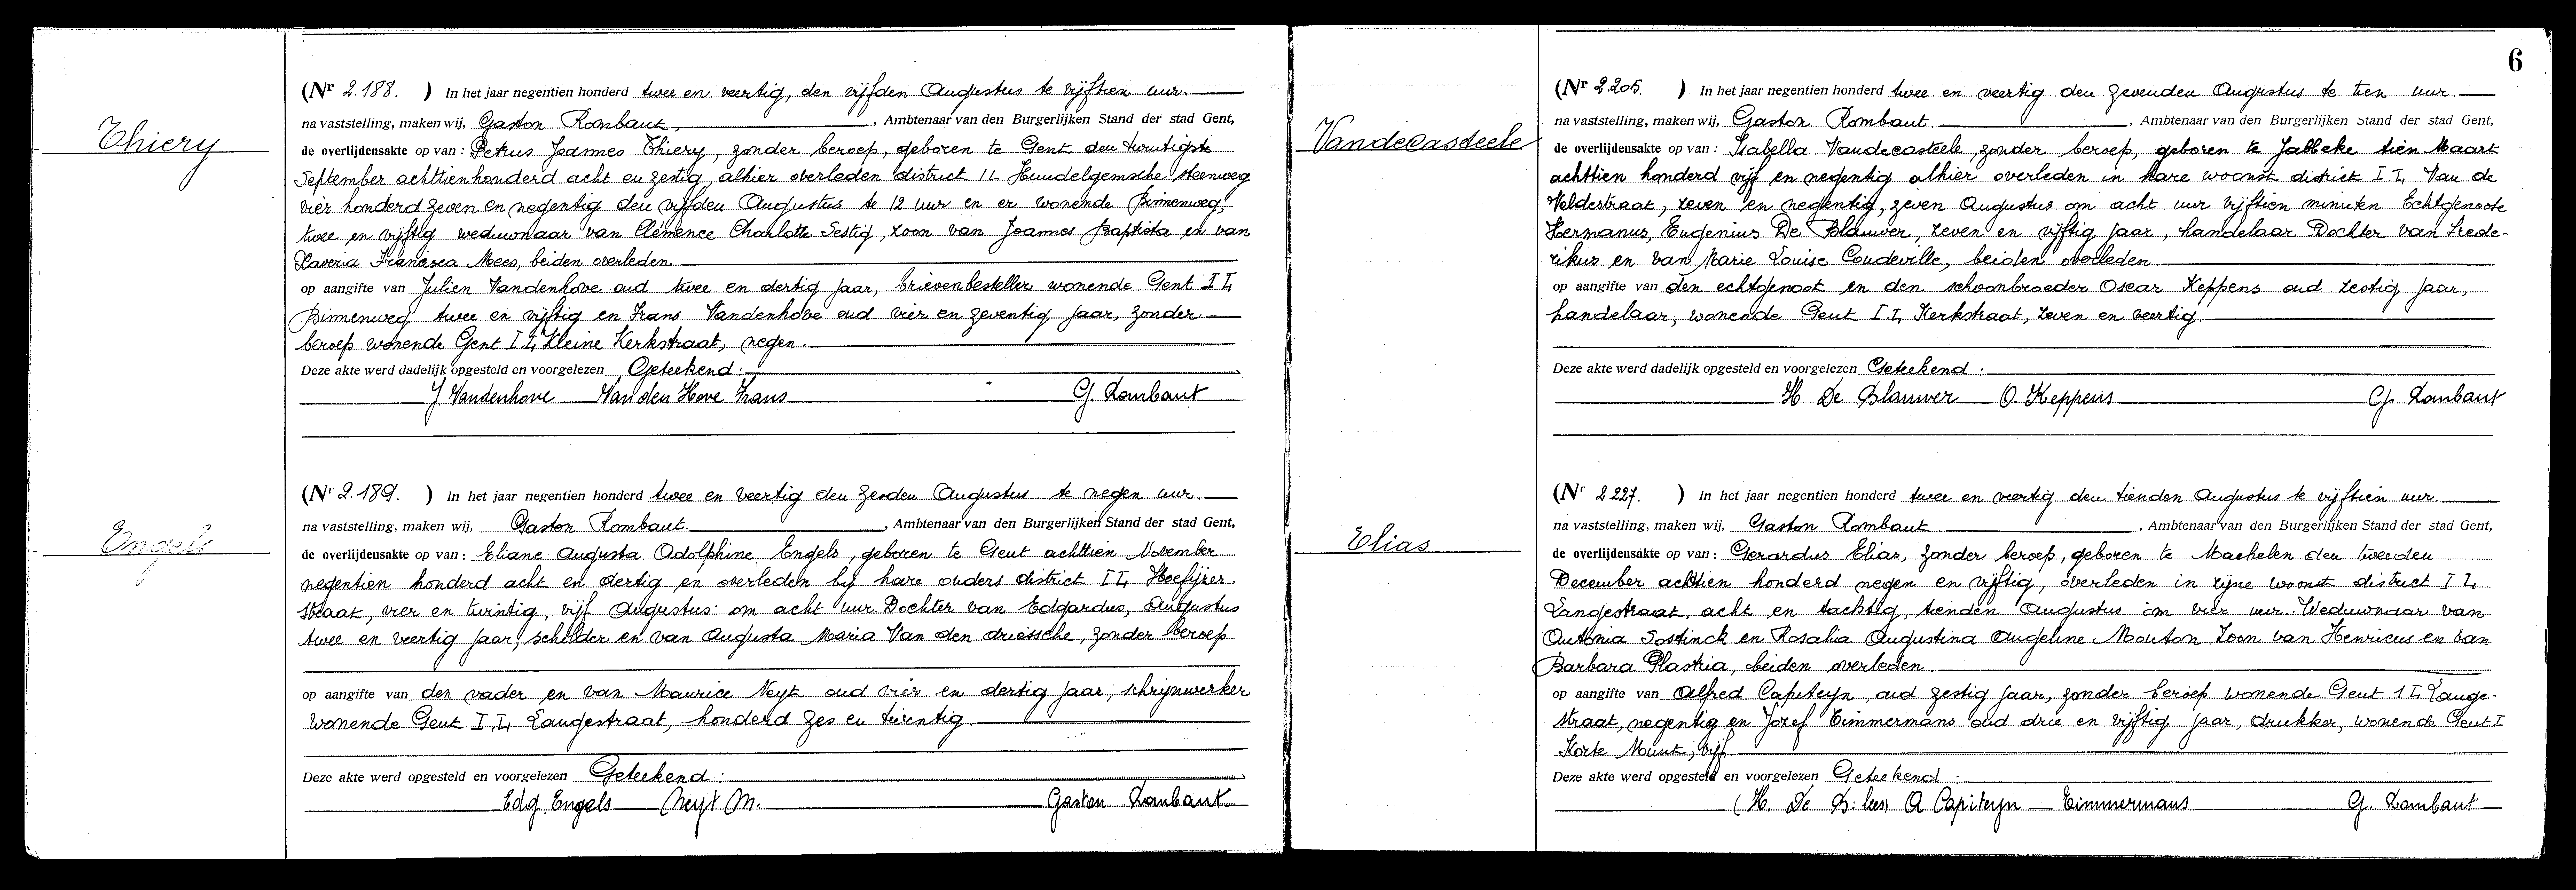 Thiery
(Nr 2.188. ) In het jaar negentien honderd twee en veertig, den vijfden Augustus te vijftien uur.
na vaststelling, maken wij, Gaston Rombaut, , Ambtenaar van den Burgerlijken Stand der stad Gent,
de overlijdensakte op van : Petrus Joannes Thiery, zonder beroep, geboren te Gent den twintigste
September achttienhonderd acht en zestig, alhier overleden district II Hundelgemsche steenweg
vier honderd zeven en negentig den vijfden Augustus te 12 uur en er wonende Binnenweg,
twee en vijftig weduwnaar van Clémence Charlotte Sestig, zoon van Joannes Baptista en van
Xaveria Francisca Mees, beiden overleden
op aangifte van Julien Vandenhove oud twee en dertig jaar, brievenbesteller wonende Gent II,
Binnenweg twee en vijftig en Frans Vandenhove oud vier en zeventig jaar, zonder
beroep wonende Gent II, Kleine Kerkstraat, negen.
Deze akte werd dadelijk opgesteld en voorgelezen Geteekend :
J. Vandenhove Van den Hove Frans G. Rombaut
Engels
(Nr 2.189. ) In het jaar negentien honderd twee en veertig den zesden Augustus te negen uur
na vaststelling, maken wij, Gaston Rombaut. , Ambtenaar van den Burgerlijken Stand der stad Gent,
de overlijdensakte op van : Eliane Augusta Adolphine Engels, geboren te Gent achttien November
negentien honderd acht en dertig en overleden bij hare ouders district II,
straat, vier en twintig, vijf Augustus om acht uur. Dochter van Edgardus, Augustus
twee en veertig jaar, schilder en van Augusta Maria Van den driessche, zonder beroep
op aangifte van den vader en van Maurice Neyt oud vier en dertig jaar, schrijnwerker
wonende Gent II, Langestraat, honderd zes en twintig
Deze akte werd opgesteld en voorgelezen Geteekend :
Edg. Engels Neyt M. Gaston Rombaut
6
Vandecasteele
(Nr 2205. ) In het jaar negentien honderd twee en veertig den zevenden Augustus te tien uur
na vaststelling, maken wij, Gaston Rombaut. , Ambtenaar van den Burgerlijken Stand der stad Gent,
de overlijdensakte op van : Isabella Vandecasteele, zonder beroep, geboren te Jabbeke tien Maart
achttien honderd vijf en negentig alhier overleden in hare woonst district II, Van de
Veldestraat, zeven en negentig, zeven Augustus om acht uur vijftien minuten Echtgenoote
Hermanus, Eugenius De Blauwer, zeven en vijftig jaar, handelaar Dochter van Frede-
rikus en van Marie Louise Coudeville, beiden overleden
op aangifte van den echtgenoot en den schoonbroeder Oscar Keppens oud zestig jaar,
handelaar, wonende Gent II, Kerkstraat, zeven en veertig
Deze akte werd dadelijk opgesteld en voorgelezen Geteekend :
H De Blauwer O. Keppens G. Rombaut
Elias
(Nr 2227. ) In het jaar negentien honderd twee en veertig den tienden Augustus te vijftien uur
na vaststelling, maken wij, Gaston Rombaut , Ambtenaar van den Burgerlijken Stand der stad Gent,
de overlijdensakte op van : Gerardus Elias, zonder beroep, geboren te Machelen den tweeden
December achttien honderd negen en vijftig, overleden in zijne woonst district II,
Langestraat, acht en tachtig, tienden Augustus om vier uur. Weduwnaar van
Antonia Sostinck en Rosalia Augustina Angeline Mouton Zoon van Henricus en van
Barbara Plastria, beiden overleden
op aangifte van Alfred Capiteyn, oud zestig jaar, zonder beroep wonende Gent II Lange-
straat, negentig en Jozef Timmermans oud drie en vijftig jaar, drukker, wonende Gent I
Korte Munt, vijf.
Deze akte werd opgesteld en voorgelezen Geteekend :
(H. De B: lees) A Capiteyn Timmermans G. Rombaut